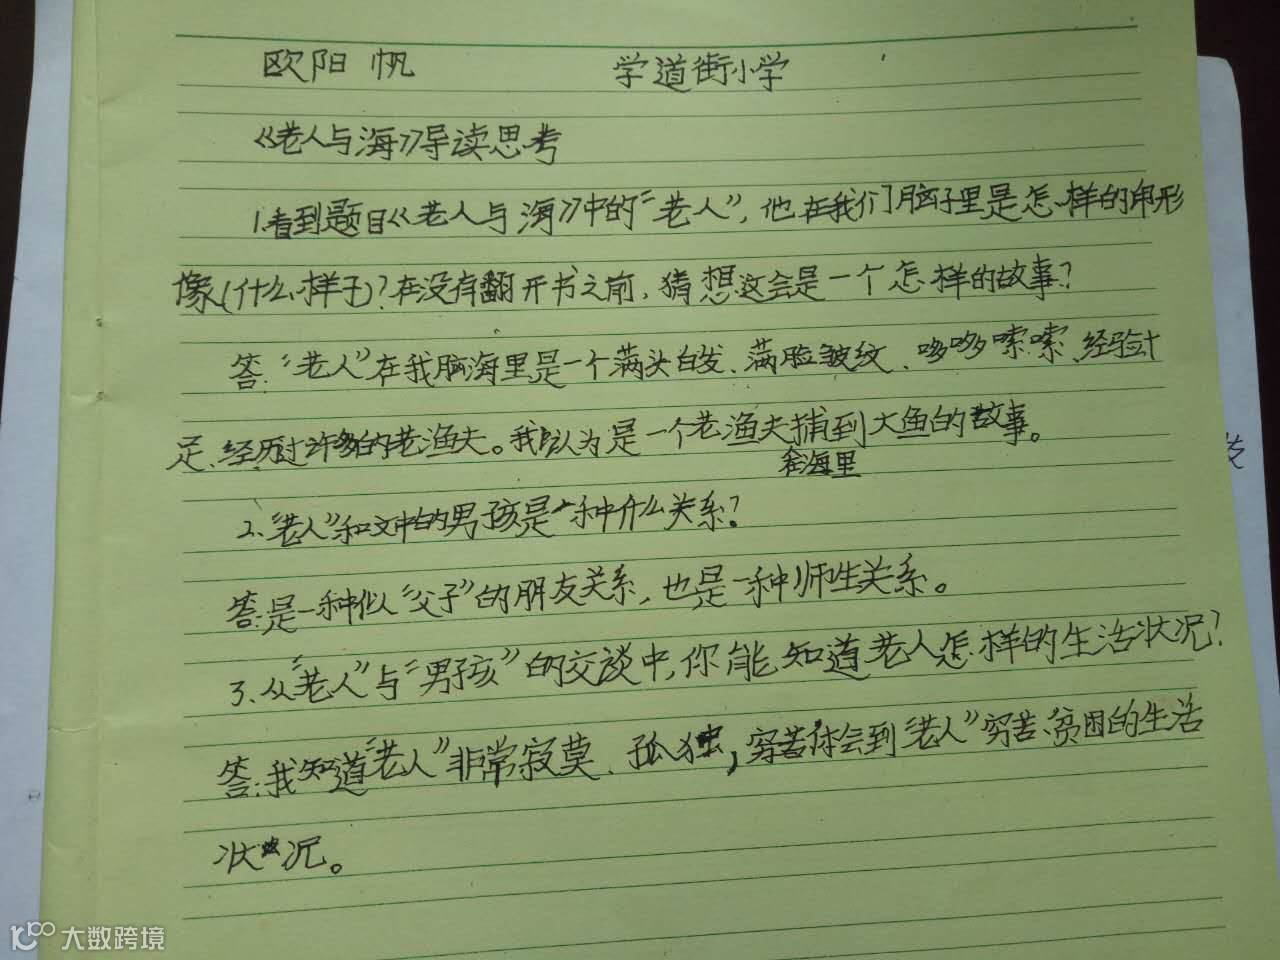 欧阳 帆 学道街小学
《老人与海》导读思考
1.看到题目《老人与海》中的“老人”,他在我们脑子里是怎样的印形
像(什么样子)?在没有翻开书之前,猜想这会是一个怎样的故事?
答:“老人”在我脑海里是一个满头白发、满脸皱纹、哆哆嗦嗦、经验十
足、经历过许多的老渔夫。我以为是一个老渔夫捕到大鱼的故事。
在海里
2、“老人”和文中的男孩是一种什么关系?
答:是一种似“父子”的朋友关系,也是一种师生关系。
3、从“老人”与“男孩”的交谈中,你能知道老人怎样的生活状况?
答:我知道“老人”非常寂莫、孤独,穷苦体会到“老人”穷苦、贫困的生活
状况。
大数跨境